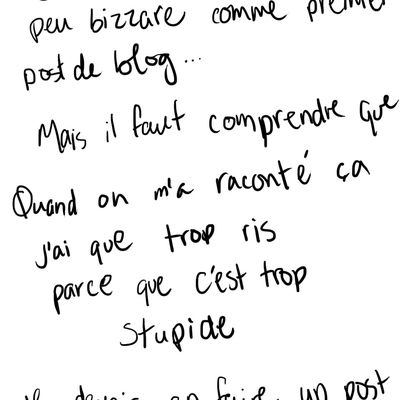 peu bizzare comme premier
post de blog...
Mais il faut comprendre que
Quand on m'a raconté ça
j'ai que trop ris
parce que c'est trop
stupide
devais en faire un post